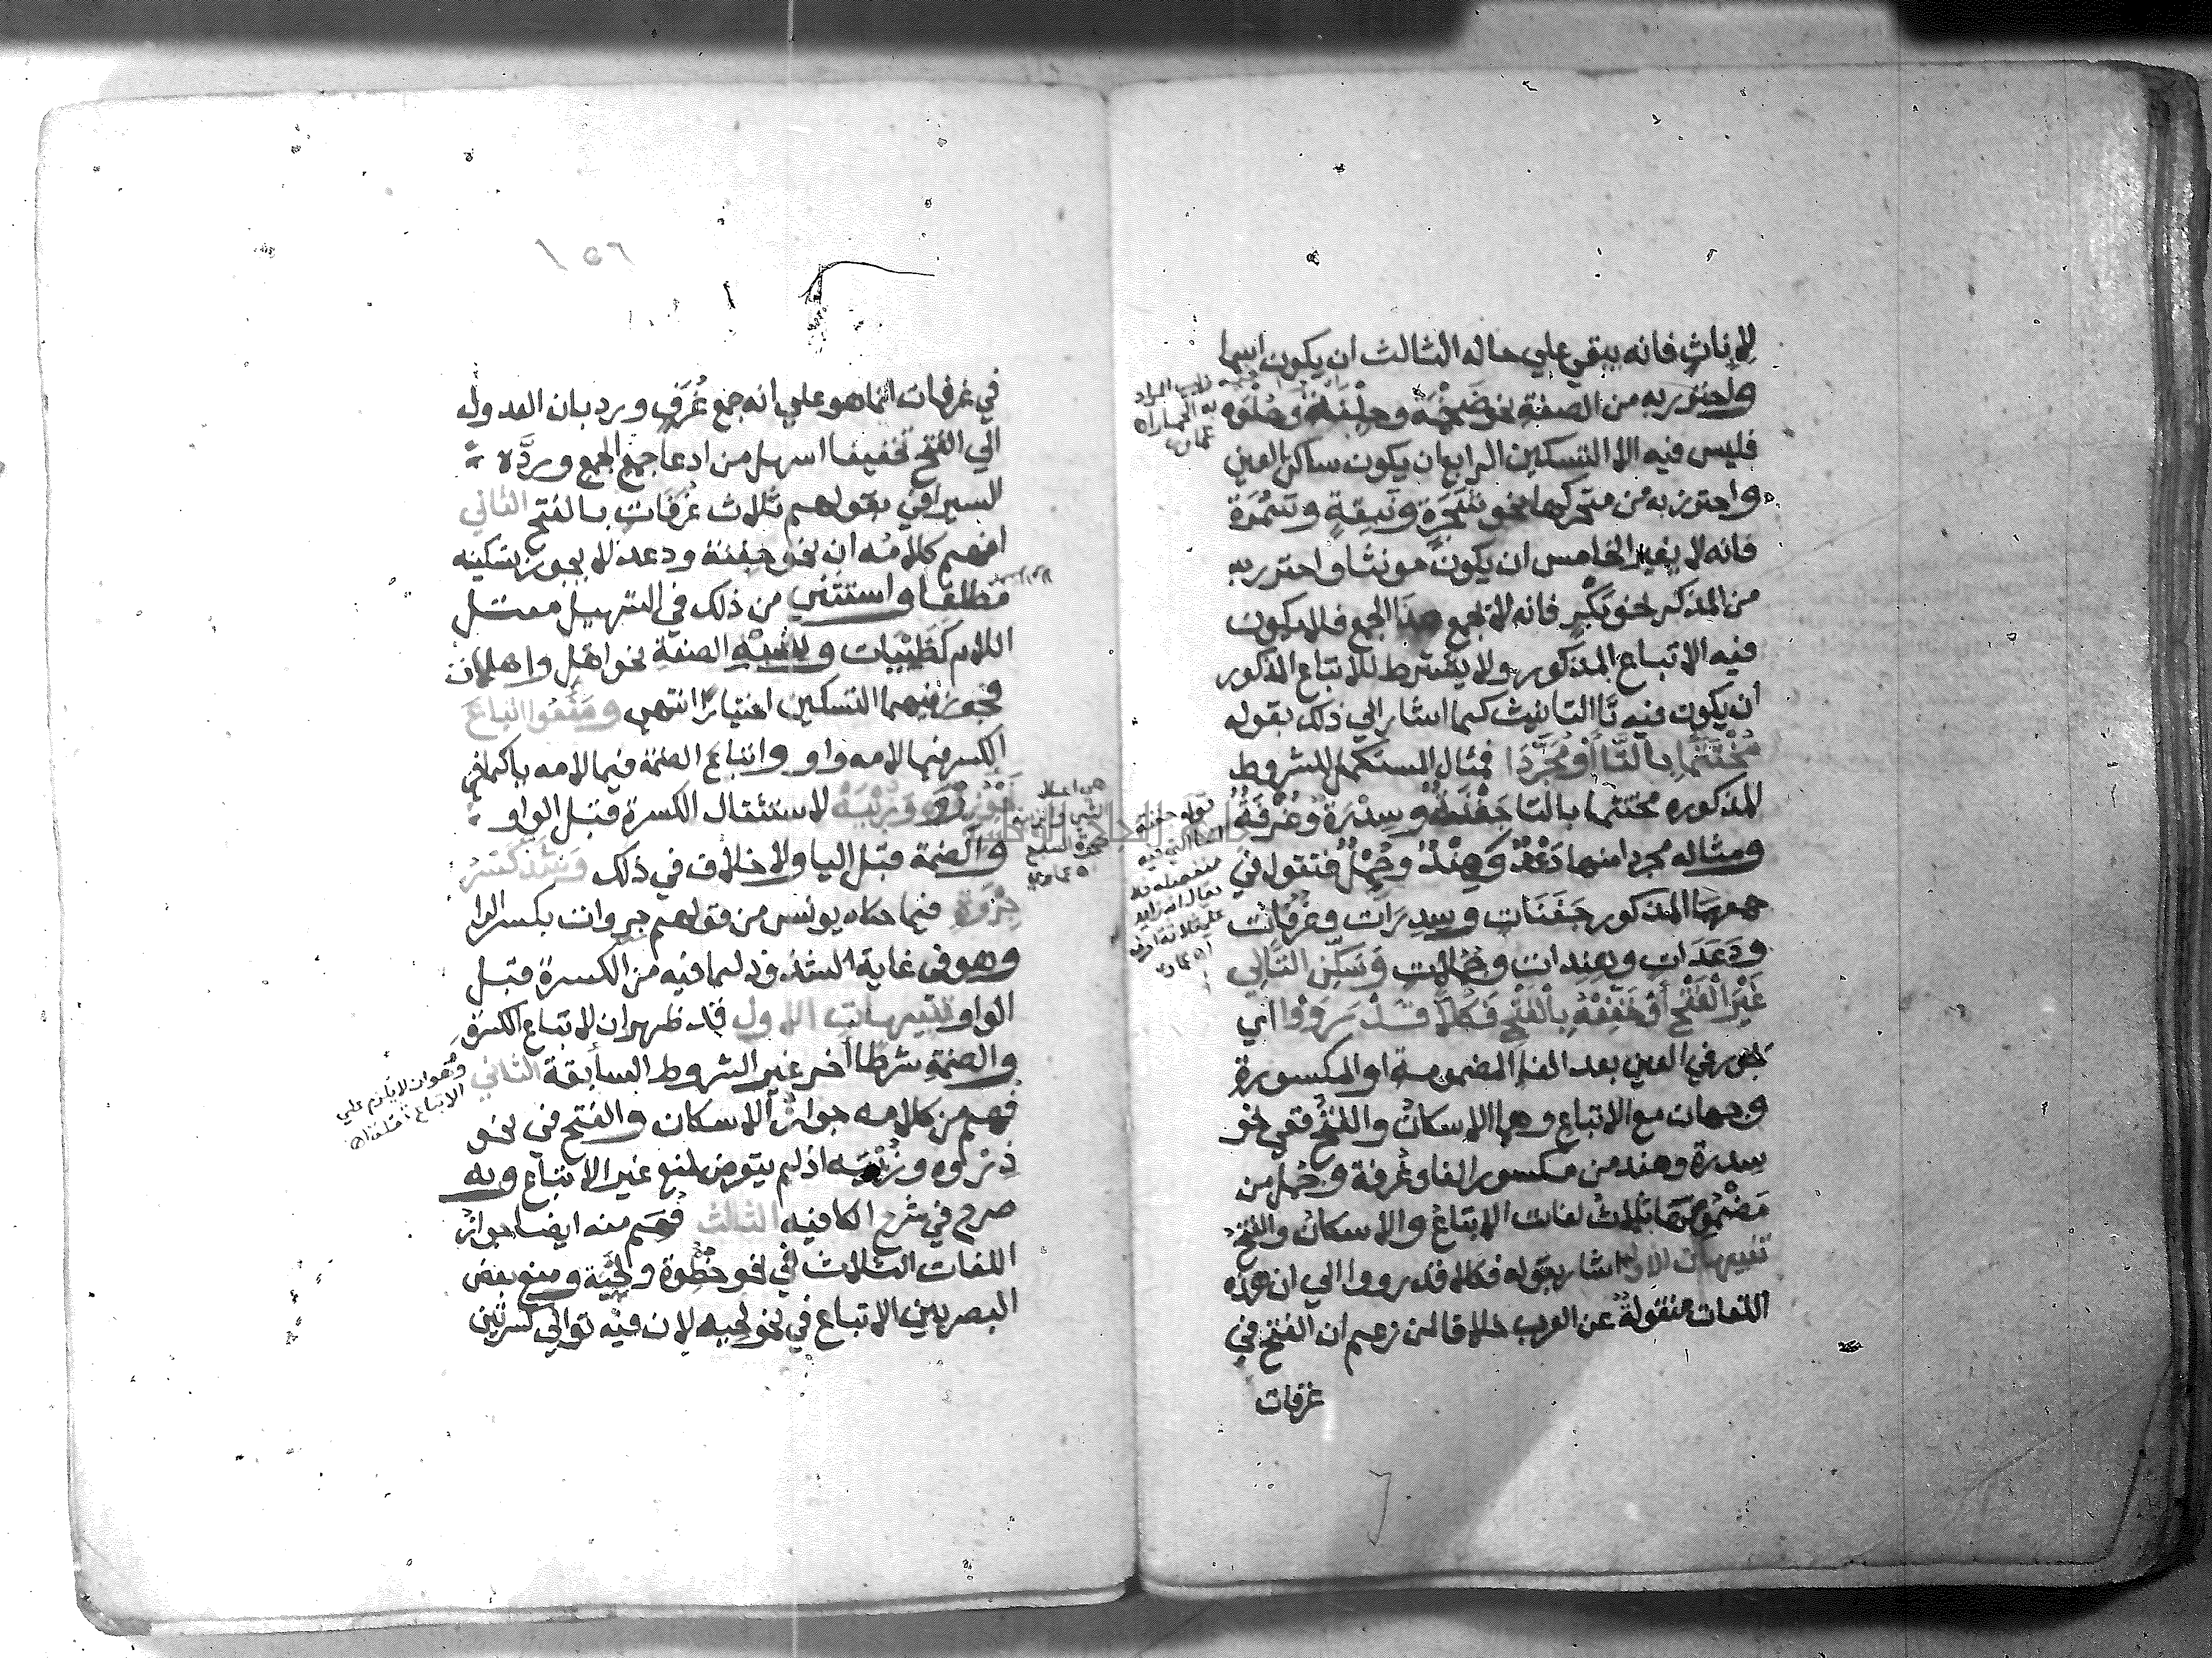 للاناث فانه يبقي علي حاله الثالث ان يكون اسما
واحترز به من الصفة نحو ضخمة وجلفة وحلوه
فليس فيه الا التسكين الرابع ان يكون ساكن العين
واحترز به من متحركها نحو شجرة ونبقة وسمرة
فانه لا يغير الخامس ان يكون مونثا واحترز به
من المذكر نحو بكر فانه لا يجمع هذا الجمع فلا يكون
فيه الاتباع المذكور ولا يشترط للاتباع المذكور
أن يكون فيه تا التانيث كما اشار الي ذلك بقوله
مُخْتَتَمًا بالتَّا أوْ مُجَرَّدَا فمثال المستكمل للشروط
المذكوره مختتما بالتا جَفْنَة وسِدْرَة وغُرْفَة
ومثاله مجردا منها دَعْد وَهِنْد وجُمْل فتقول في
جمعها المذكور جَفَنَات وسِدِرَات وغُرُفَات
ودَعَدَات وهِنِدات وجُمُلات وَسَكِّنِ التَّالِي
غَيْرَ الْفَتْحِ أوْ خَفِّفْهُ بِالْفَتْحِ فَكُلّا قَدْ رَوَوْا اي
يجوز في العين بعد الفا المضمومة او المكسورة
وجهان مع الاتباع وهما الاسكان والفتح ففي نحو
سدرة وهند من مكسور الفا وغُرفة وجمل من
مَضْمُومِهَا ثلاث لغات الاتباع والاسكان والفتح
تنبيهات الاول اشار بقوله فكلا قد رووا الي ان هذه
اللغات منقولة عن العرب خلافا لمن زعم ان الفتح في
غرفات
قوله جفنة
في غرفات انما هو علي انه جمع غُرَف ورد بان العدول
الي الفتح تخفيفا اسهل من ادعا جمع الجمع وردَّه
السيرافي بقولهم ثلاث غُرَفات بالفتح الثاني
افهم كلامه ان نحو جفنة ودعد لا يجوز تسكينه
مطلقا واستثني من ذلك في التسهيل معتل
اللام كظَبْيات وشبه الصفة نحو اهل واهلات
فيجوز فيهما التسكين اختيارًا انتهي ومَنَعُوا اتباعَ
الكسر فيما لامه واو واتباع الضمة فيما لامه يا كما في
نحو ذِرْوَة وَزُبْيَهْ لاستثقال الكسرة قبل الواو
والضمة قبل اليا ولا خلاف في ذلك وَشَذَّ كَسْرُ
جِرْوَة فيما حكاه يونس من قولهم جروات بكسر الرا
وهو في غاية الشذوذ لما فيه من الكسرة قبل
الواو تنبيهات الاول قد ظهر ان لاتباع الكسرة
والضمة شرطا آخر غير الشروط السابقة الثاني
وهو ان لا يلزم علي
الاتباع
فهم من كلامه جواز الاسكان والفتح في نحو
ذروه وزبيه اذ لم يتعرض لمنع غير الاتباع وبه
صرح في شرح الكافيه الثالث فهم منه ايضا جواز
اللغات الثلاث في نحو خُطوة ولِحْيَة ومنع بعض
البصريين الاتباع في نحو لحيه لان فيه توالي كسرتين